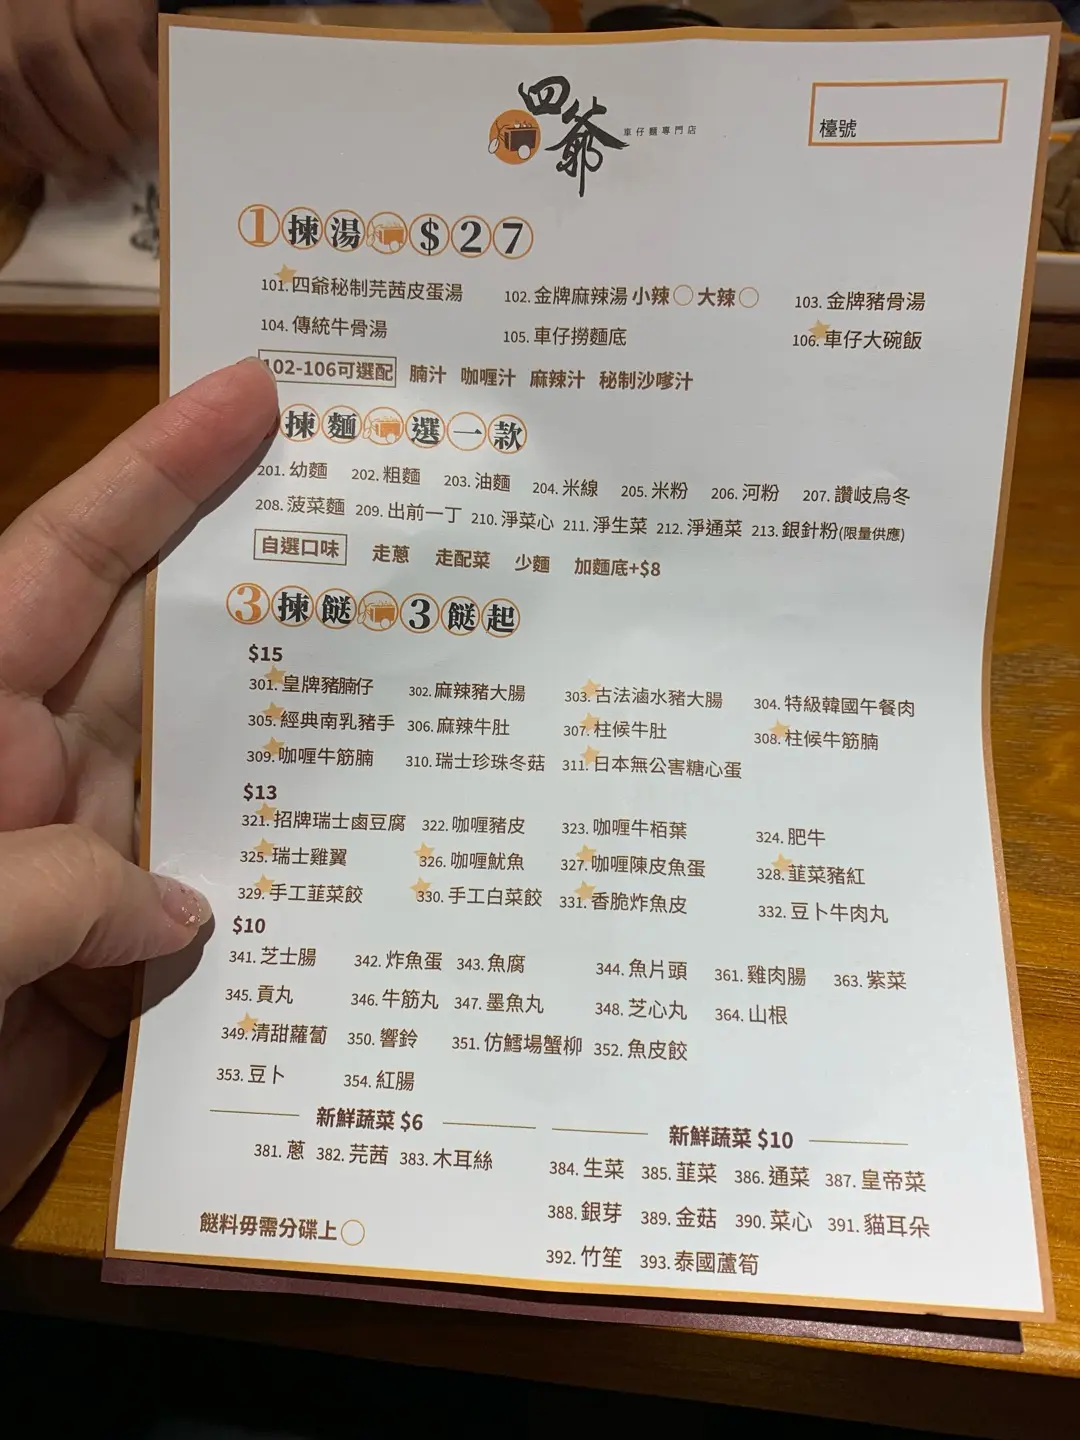 四爺
車仔麵專門店
檯號
1 揀湯 $27
101. 四爺秘制芫茜皮蛋湯 102. 金牌麻辣湯 小辣 大辣 103. 金牌豬骨湯
104. 傳統牛骨湯 105. 車仔撈麵底 106. 車仔大碗飯
102-106可選配 腩汁 咖喱汁 麻辣汁 秘制沙嗲汁
揀麵 選一款
201. 幼麵 202. 粗麵 203. 油麵 204. 米線 205. 米粉 206. 河粉 207. 讚岐烏冬
208. 菠菜麵 209. 出前一丁 210. 淨菜心 211. 淨生菜 212. 淨通菜 213. 銀針粉(限量供應)
自選口味 走蔥 走配菜 少麵 加麵底+$8
3 揀餸 3餸起
$15
301. 皇牌豬腩仔 302. 麻辣豬大腸 303. 古法滷水豬大腸 304. 特級韓國午餐肉
305. 經典南乳豬手 306. 麻辣牛肚 307. 柱候牛肚 308. 柱候牛筋腩
309. 咖喱牛筋腩 310. 瑞士珍珠冬菇 311. 日本無公害糖心蛋
$13
321. 招牌瑞士鹵豆腐 322. 咖喱豬皮 323. 咖喱牛栢葉 324. 肥牛
325. 瑞士雞翼 326. 咖喱魷魚 327. 咖喱陳皮魚蛋 328. 韮菜豬紅
329. 手工韮菜餃 330. 手工白菜餃 331. 香脆炸魚皮 332. 豆卜牛肉丸
$10
341. 芝士腸 342. 炸魚蛋 343. 魚腐 344. 魚片頭 361. 雞肉腸 363. 紫菜
345. 貢丸 346. 牛筋丸 347. 墨魚丸 348. 芝心丸 364. 山根
349. 清甜蘿蔔 350. 響鈴 351. 仿鱈場蟹柳 352. 魚皮餃
353. 豆卜 354. 紅腸
新鮮蔬菜 $6
381. 蔥 382. 芫茜 383. 木耳絲
新鮮蔬菜 $10
384. 生菜 385. 韮菜 386. 通菜 387. 皇帝菜
388. 銀芽 389. 金菇 390. 菜心 391. 貓耳朵
392. 竹笙 393. 泰國蘆筍
餸料毋需分碟上